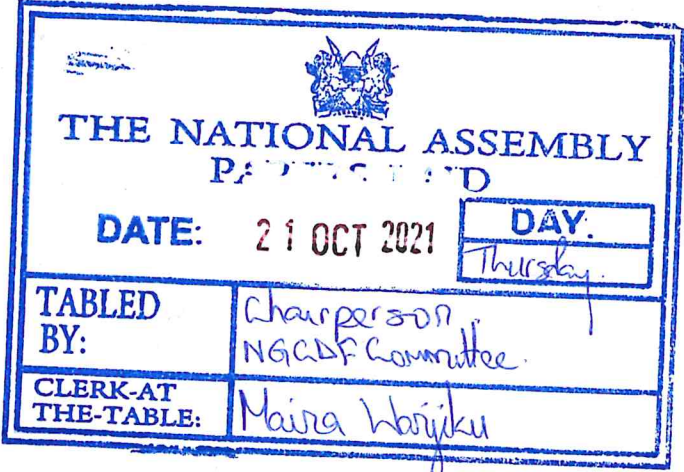 THE NATIONAL ASSEMBLY
DATE: 21 OCT 2021 DAY.
Thursday.
TABLED BY: Chairperson.
NGCDF Committee.
CLERK-AT THE-TABLE: Maina Wanjiku